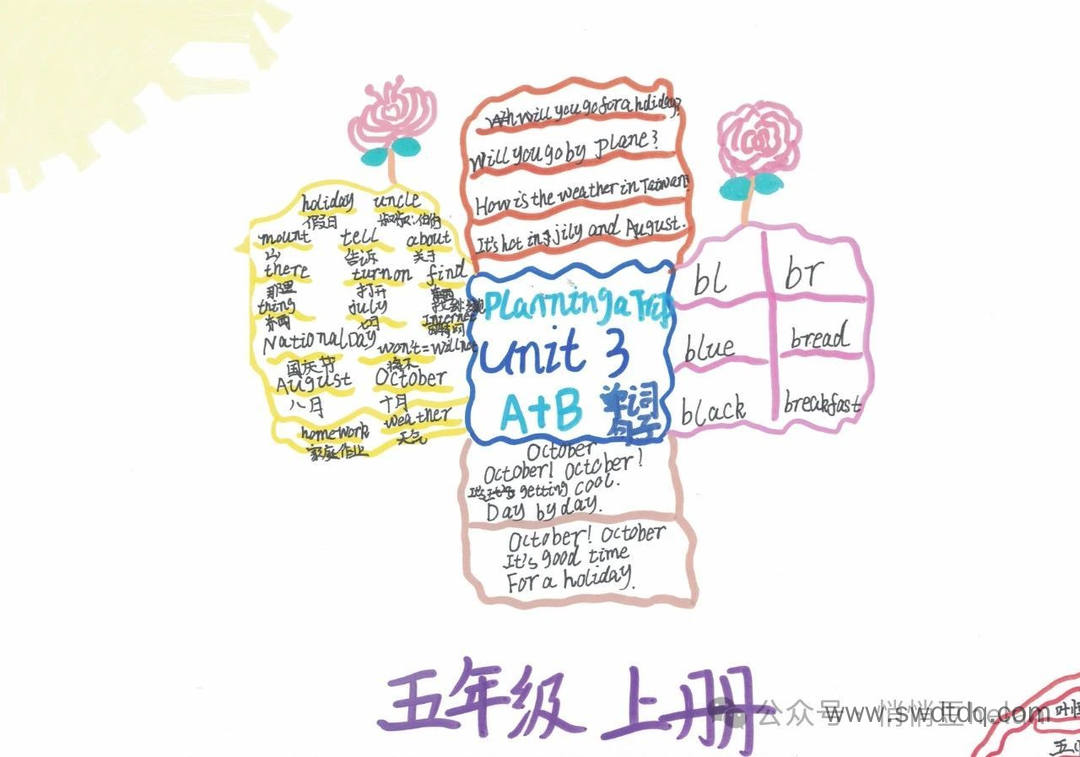 Will you go for a holiday?
Will you go by plane?
How is the weather in Taiwan?
It's hot in jily and August.
holiday uncle
假日
mount tell about
山 告诉 关于
there turn on find
那里 打开
thing july
东西 七月
Internet
National Day won't=will not
国庆节
August October
八月 十月
weather
homework 天气
家庭作业
Planning a Trip
unit 3
A+B 单词
句子
bl br
blue bread
black breakfast
October
October! October!
getting cool.
Day by day.
October! October
It's good time
For a holiday.
五年级 上册
公众号
www.swdtdq.com